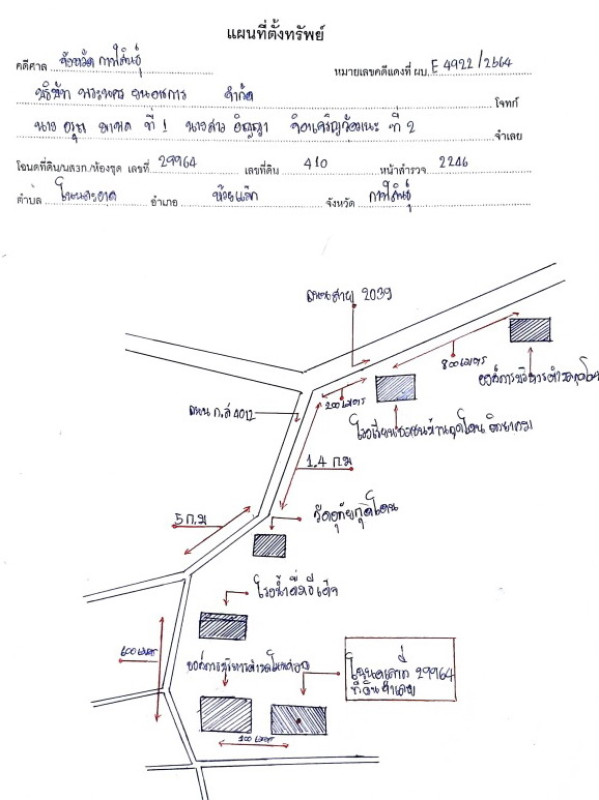 แผนที่ตั้งทรัพย์
คดีศาล จังหวัด กาฬสินธุ์ หมายเลขคดีแดงที่ ผบ. E 4922/2564
บริษัท จำกัด โจทก์
นาย ที่ 1 นางสาว ที่ 2 จำเลย
โฉนดที่ดิน/นส3ก./ห้องชุด เลขที่ 29964 เลขที่ดิน 410 หน้าสำรวจ 2246
ตำบล โนนสะอาด อำเภอ ห้วยเม็ก จังหวัด กาฬสินธุ์
ถนนสาย 2039
800 เมตร
องค์การบริหารตำบล
200 เมตร
ถนน ก.ส 4012
โรงเรียนชุมชนบ้านกุดโดน วิทยาคม
1.4 ก.ม
วัดอุทัยกุดโดน
5 ก.ม
โรงน้ำดื่ม
600 เมตร
องค์การบริหารตำบลโนนสะอาด
โฉนดเลขที่ 29964
ที่ดินจำเลย
100 เมตร